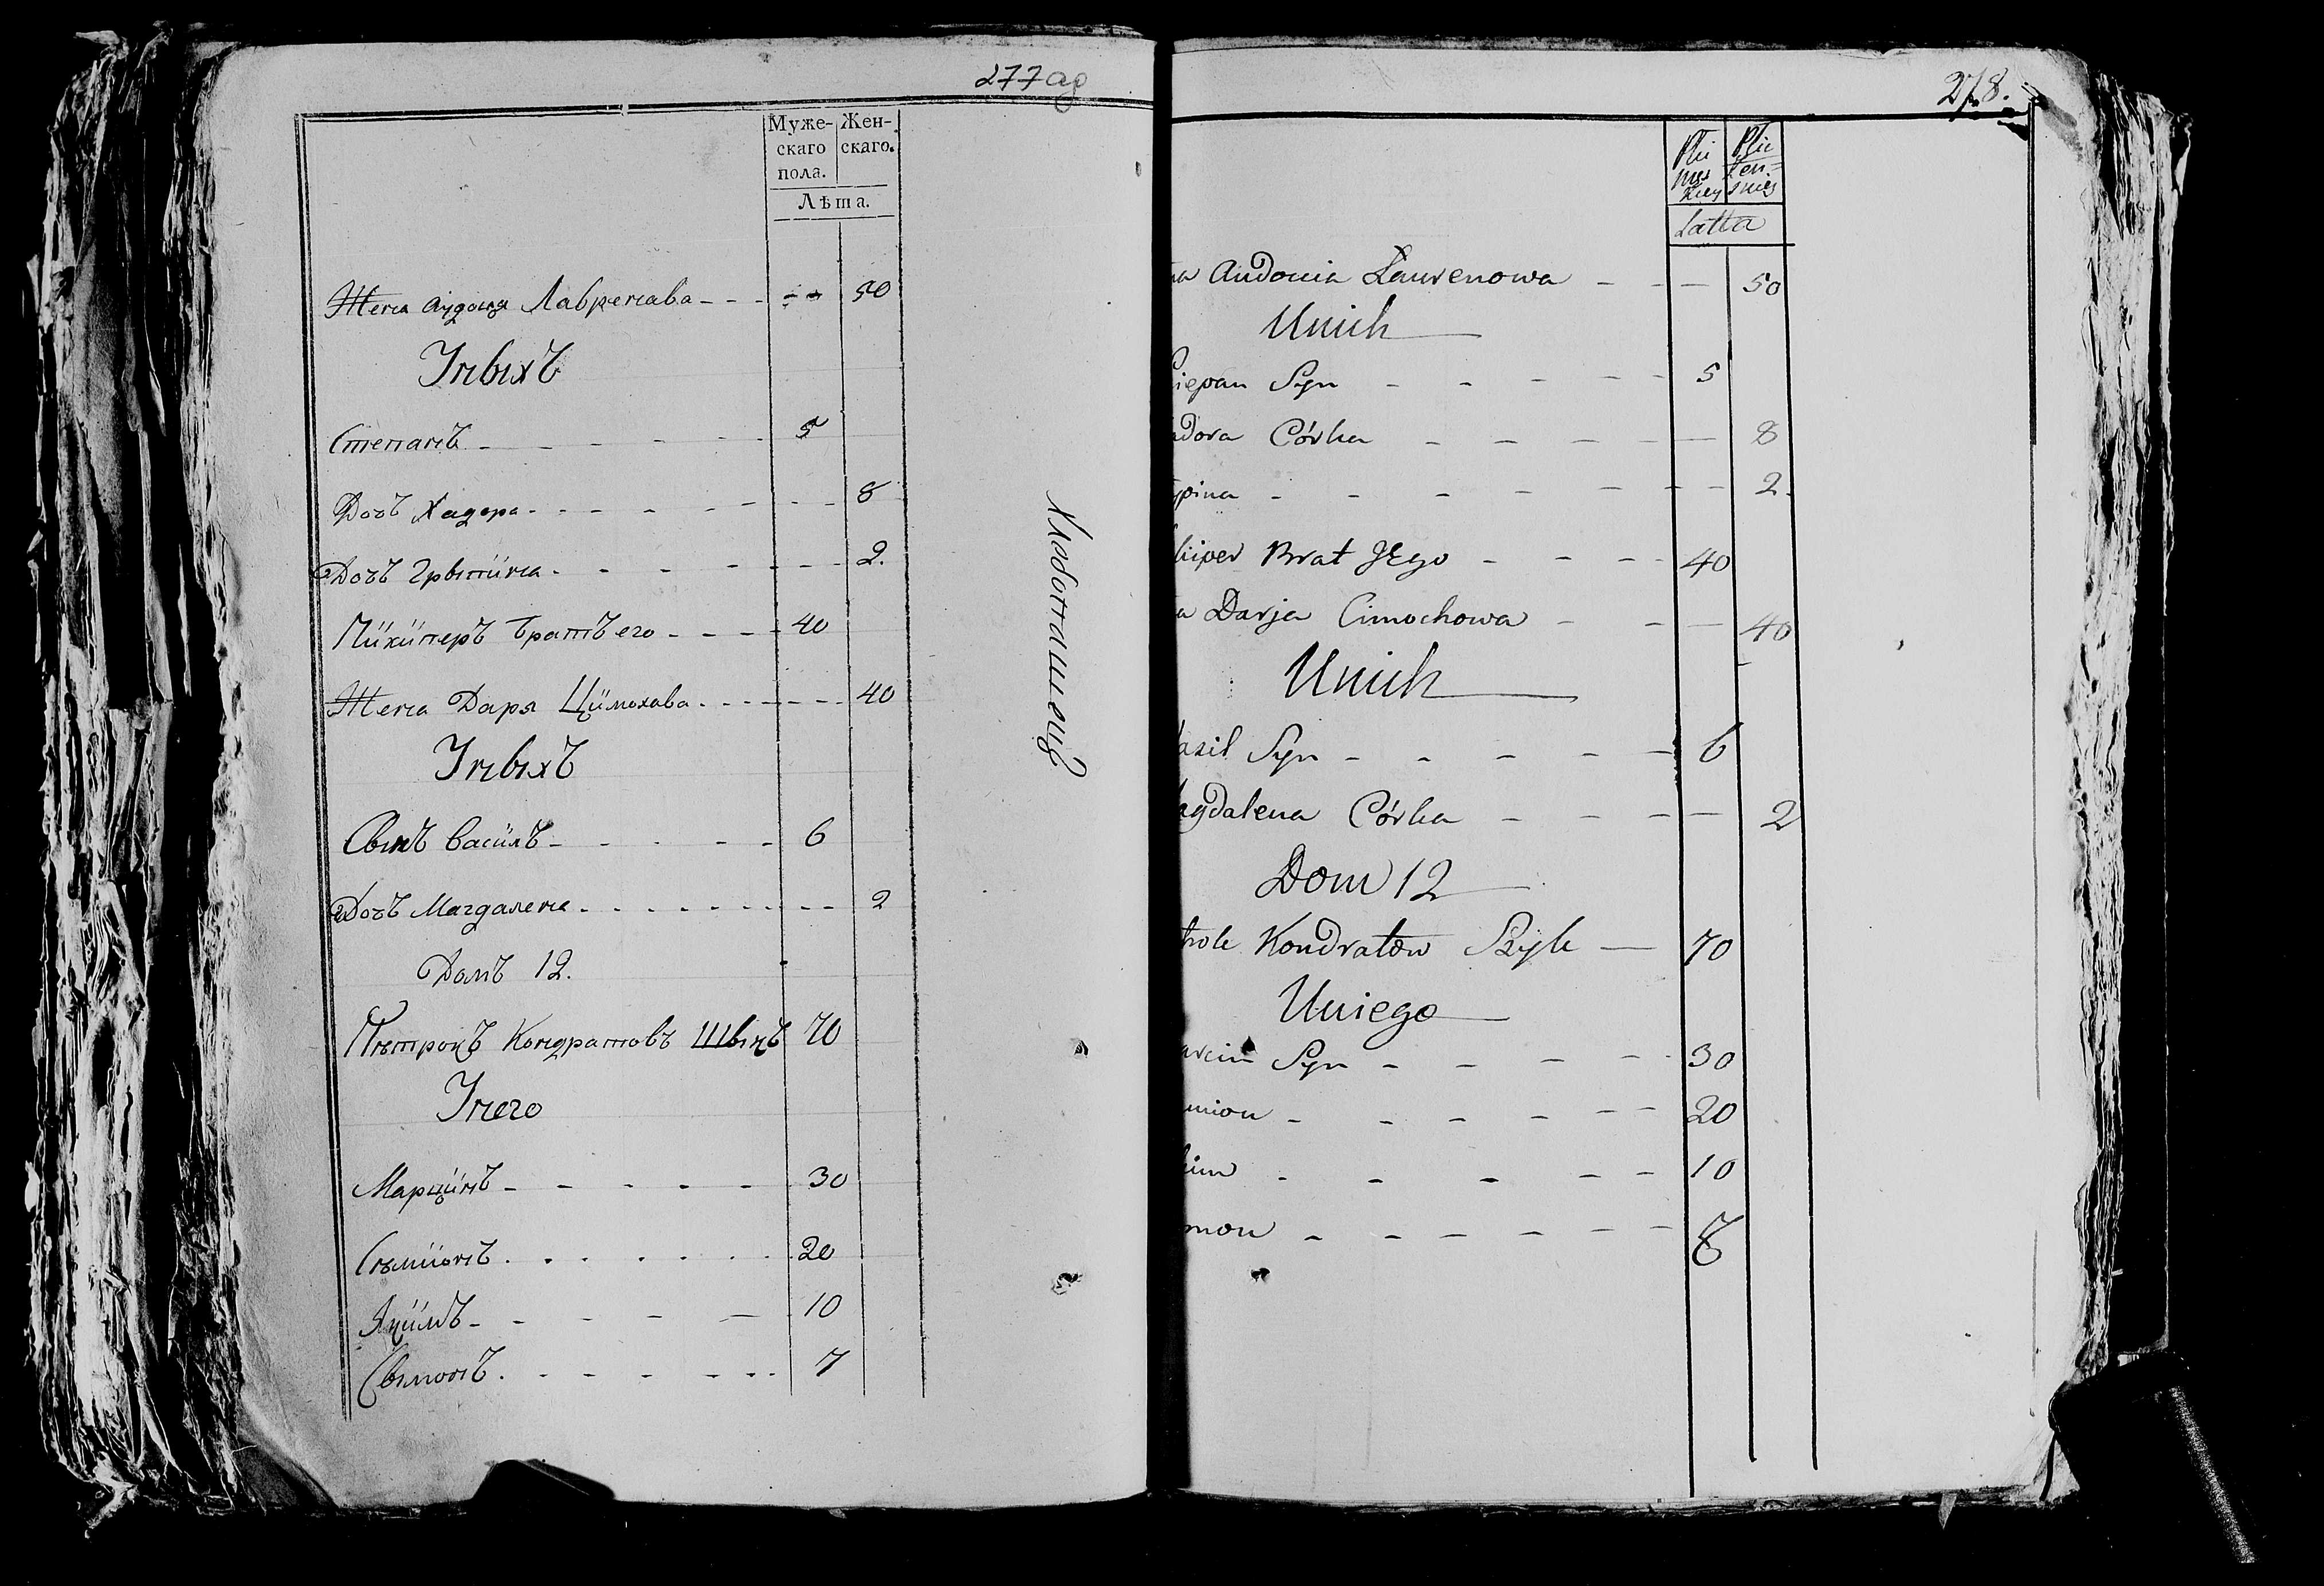 277 ад
Муже- Жен-
скаго скаго.
пола.
Лѣта.
Жена Аудоця Лавренава - - - - - 50
Унвихъ
Степанъ - - - - - - 5
Дочъ Хадора - - - - - - - - 8
Дочъ Грыпина - - - - - - - - 2.
Никиперъ братъ его - - - - 40
Жена Даря Цимохава - - - - - - - 40
Унвихъ
Сынъ Василъ - - - - - 6
Дочъ Магдалена - - - - - - - - - 2
Домъ 12.
Пѣтрокъ Кондратовъ Шыкъ 70
Унего
Марцинъ - - - - - 30
Сѣмионъ - - - - - - 20
Якимъ - - - - - 10
Сымонъ - - - - - - 7
278.
Płci Płci
męs żeń-
kiey skiey
Latta
na Audocia Laurenowa - - - 50
Unich
ciepan Syn - - - - - - 5
adora Córka - - - - - 8
ypina - - - - - - - 2
kiper Brat JEgo - - - - 40
a Darja Cimochowa - - - 40
Unich
azil Syn - - - - - 6
agdalena Córka - - - - - 2
Dom 12
trok Kondratow Szyk — 70
Uniego
arcin Syn - - - - - 30
mion - - - - - - 20
kim - - - - - 10
mon - - - - - - 8